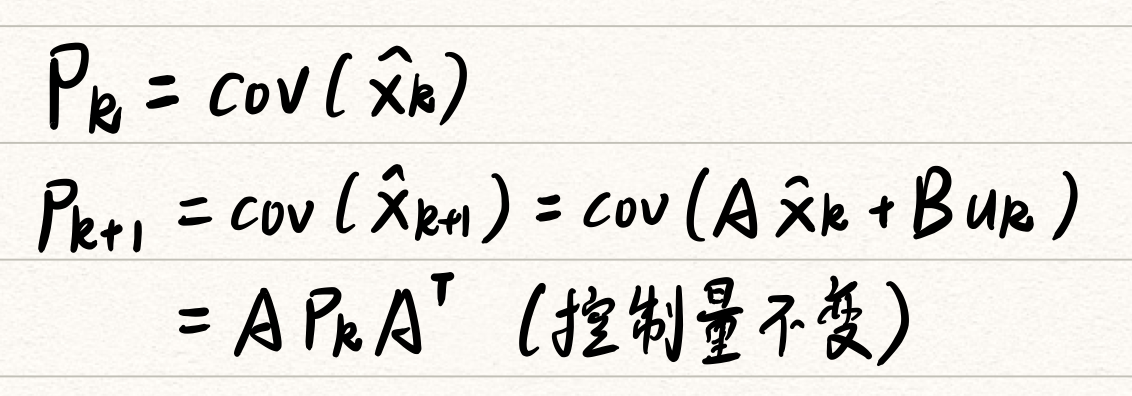 P_k = cov(x̂_k)
P_{k+1} = cov(x̂_{k+1}) = cov(A x̂_k + B u_k)
= A P_k A^T (控制量不变)